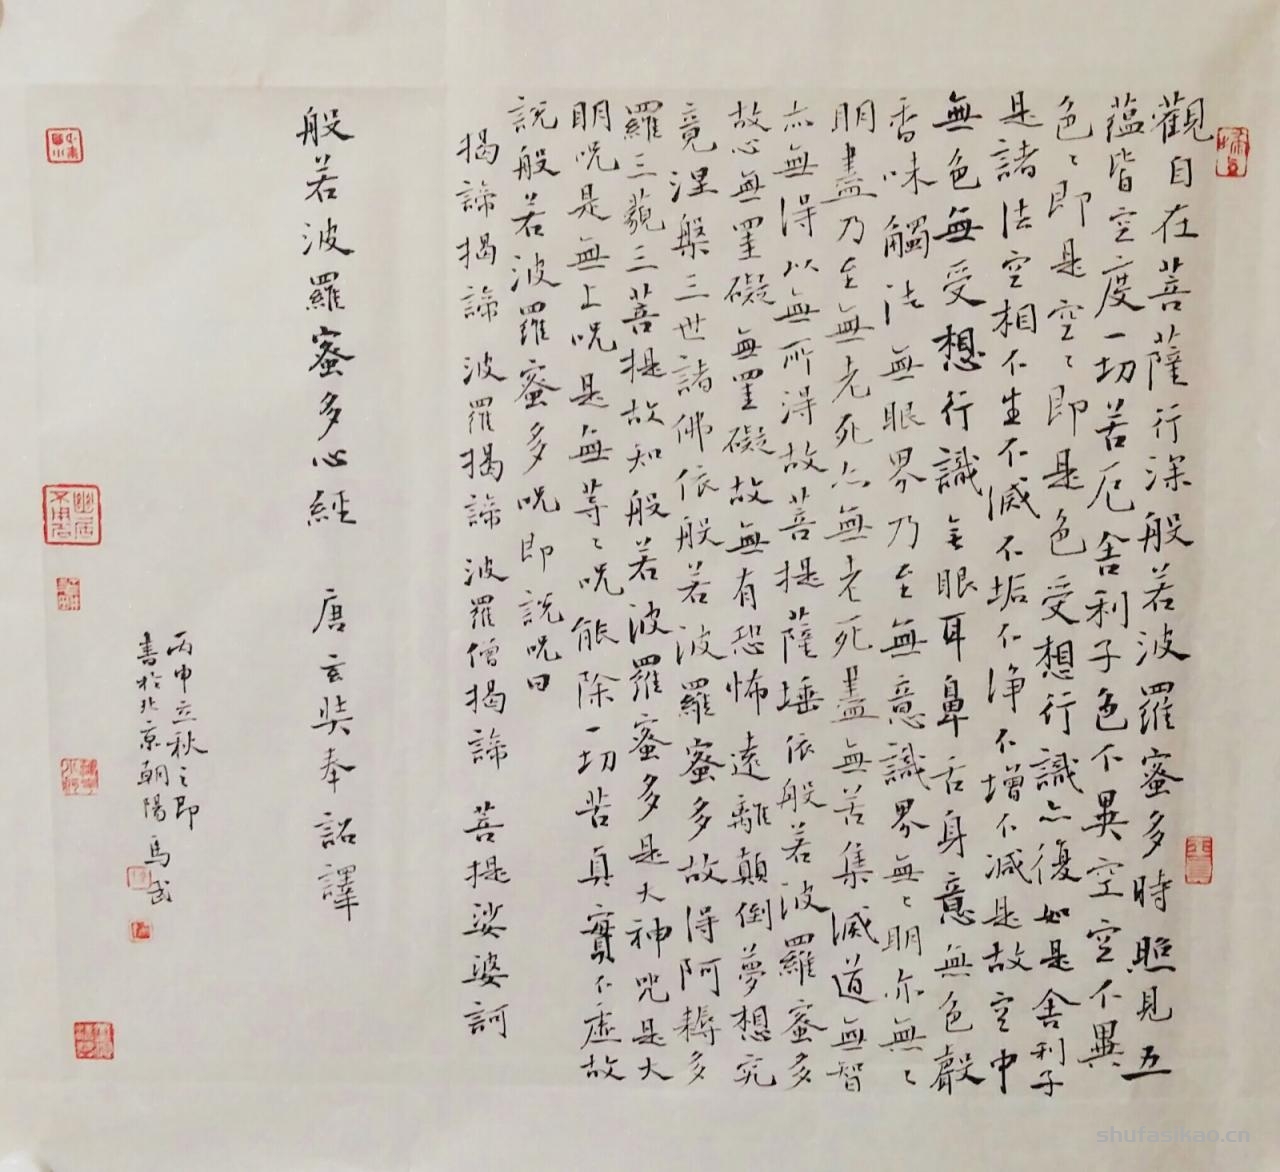 觀自在菩薩行深般若波羅蜜多時照見五
蘊皆空度一切苦厄舍利子色不異空空不異
色〻即是空〻即是色受想行識亦復如是舍利子
是諸法空相不生不滅不垢不淨不增不減是故空中
無色無受想行識無眼耳鼻舌身意無色聲
香味觸法無眼界乃至無意識界無〻明亦無〻
明盡乃至無老死亦無老死盡無苦集滅道無智
亦無得以無所得故菩提薩埵依般若波羅蜜多
故心無罣礙無罣礙故無有恐怖遠離顛倒夢想究
竟涅槃三世諸佛依般若波羅蜜多故得阿耨多
羅三藐三菩提故知般若波羅蜜多是大神咒是大
明呪是無上呪是無等〻呪能除一切苦真實不虛故
說般若波羅蜜多呪即說呪曰
揭諦揭諦波羅揭諦波羅僧揭諦 菩提娑婆訶
般若波羅蜜多心經 唐玄奘奉詔譯
丙申立秋之即
書於北京朝陽 馬武
shufasikao.cn